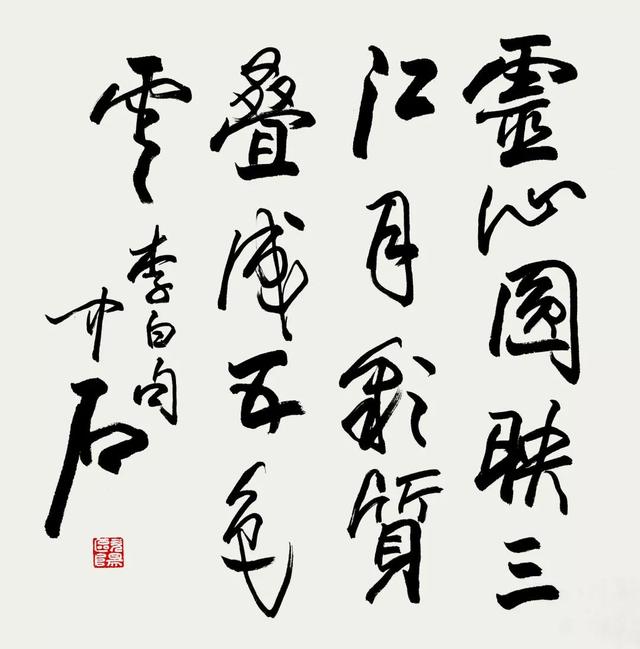 靈心圓映三
江月彩質
叠成五色
雲
李白句
中石